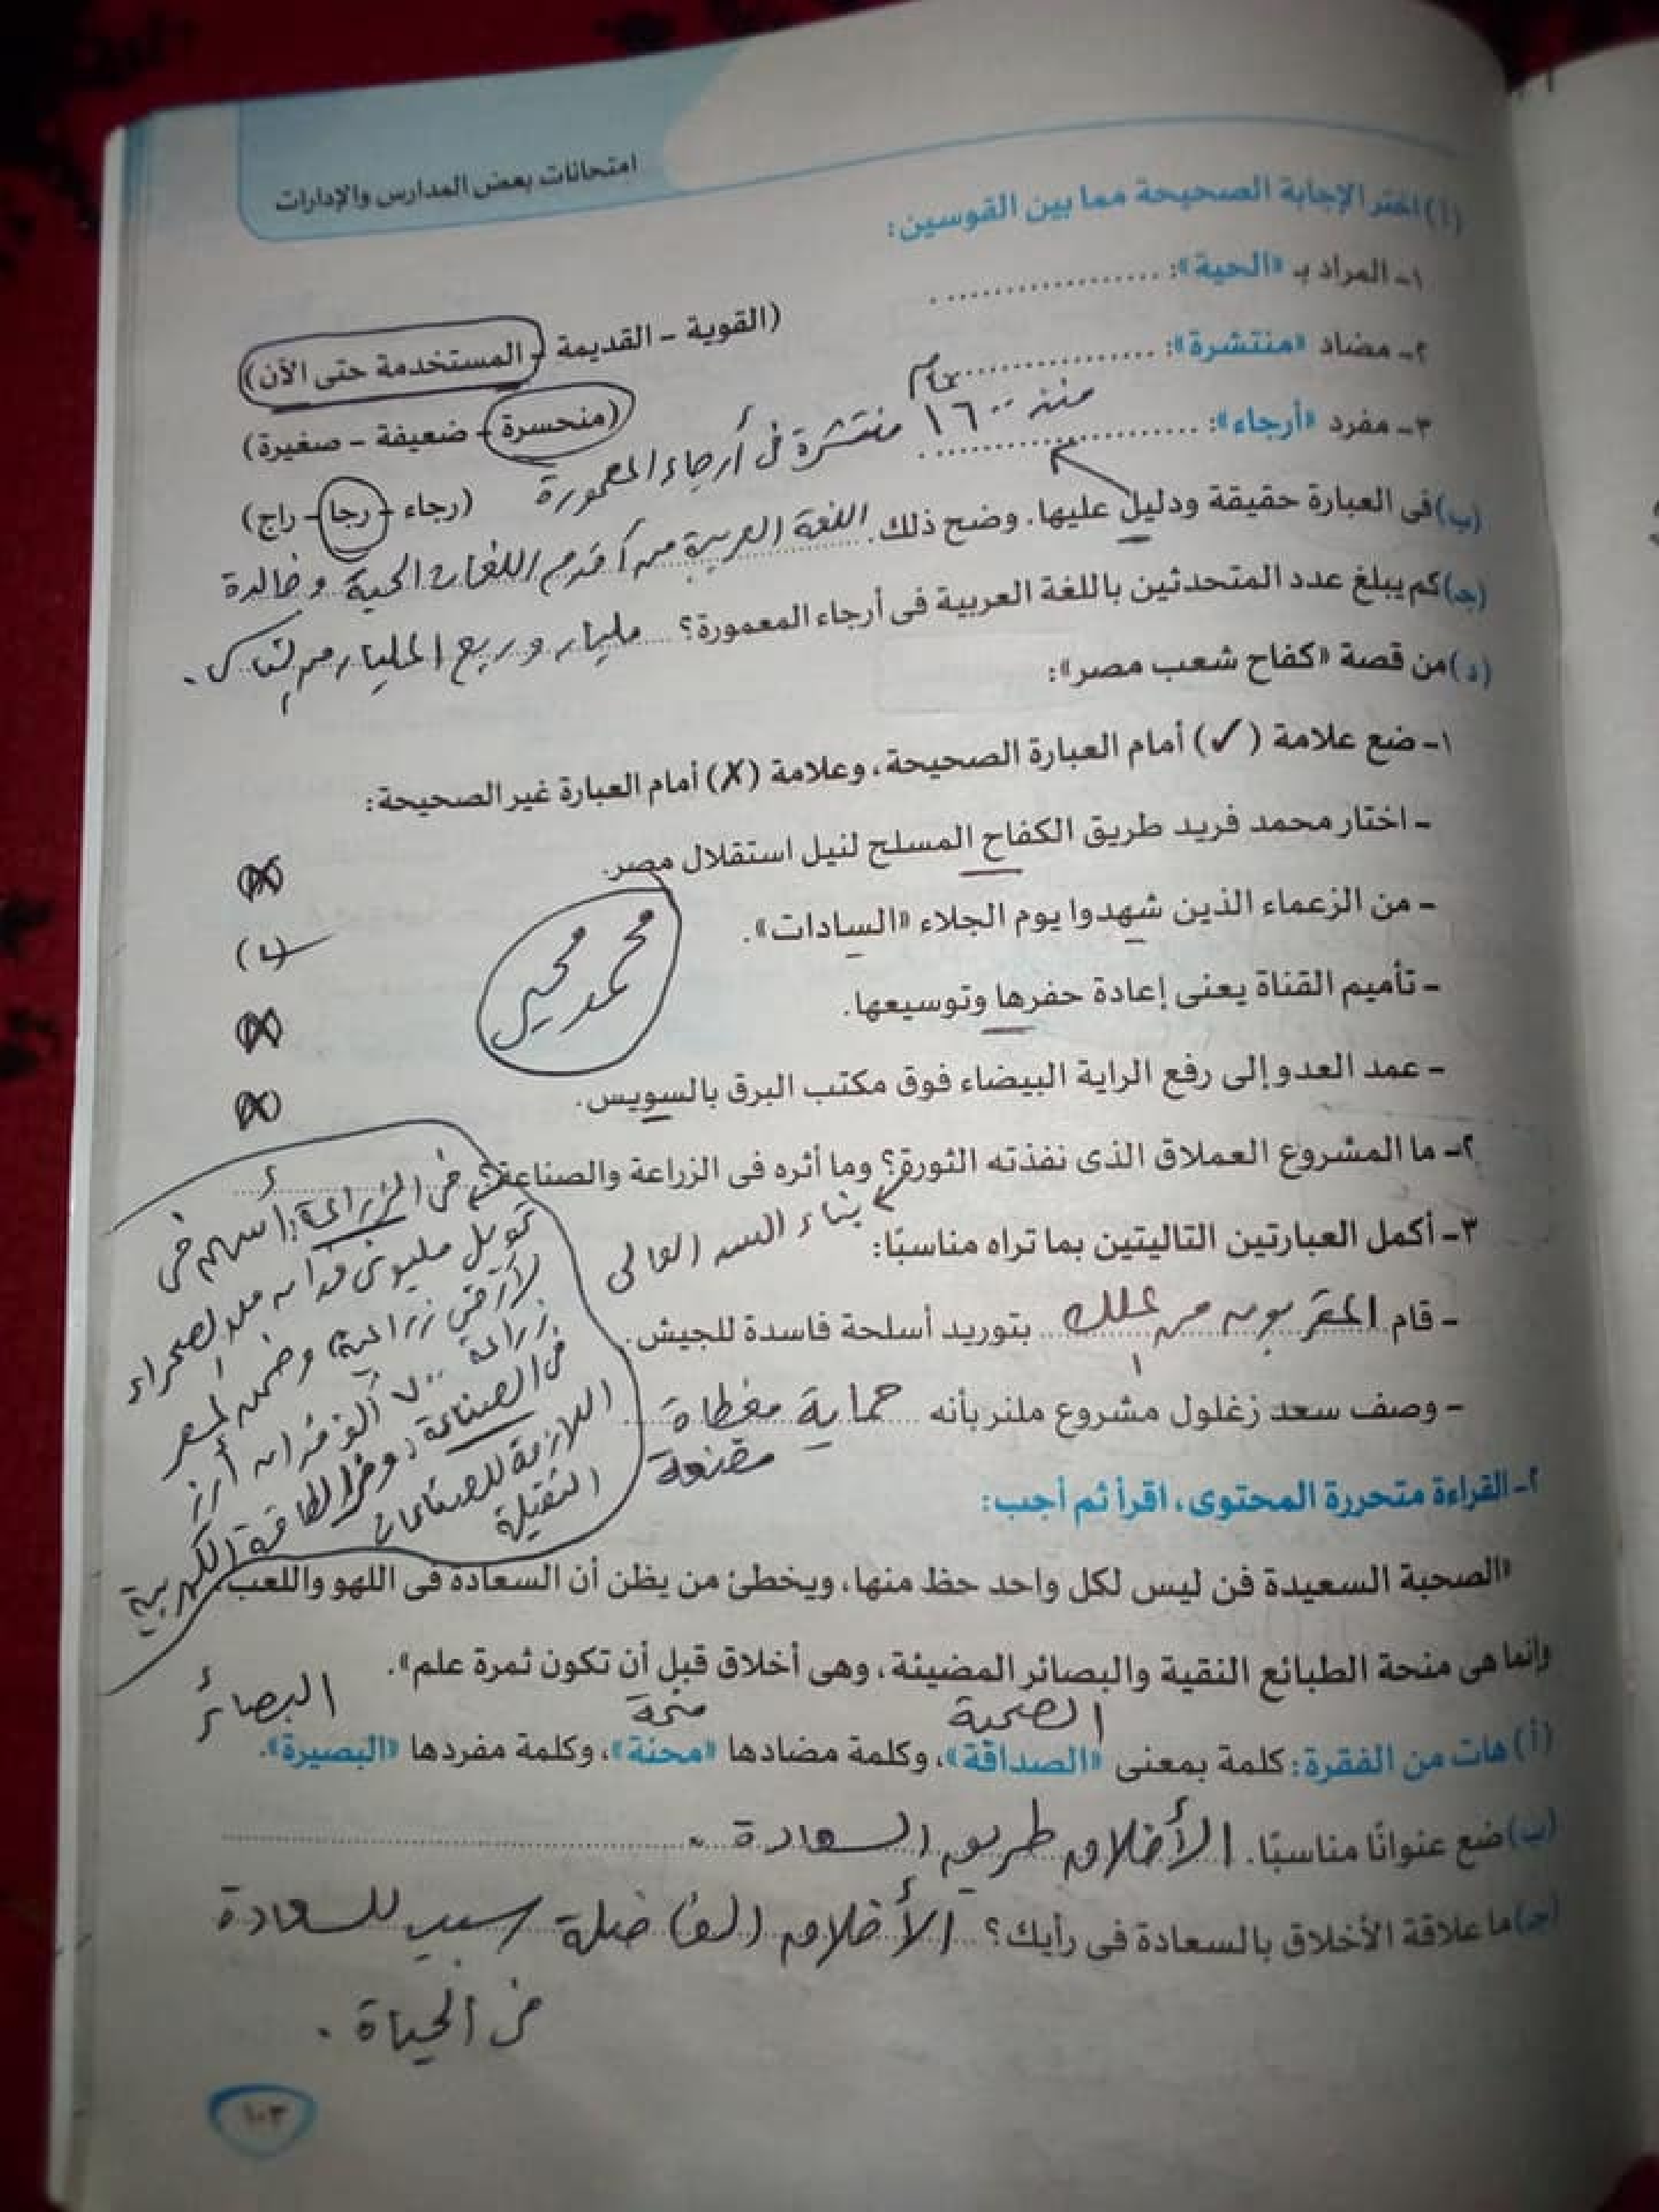 امتحانات بعض المدارس والإدارات
(أ) اختر الإجابة الصحيحة مما بين القوسين:
١- المراد بـ «الحية»: ..............
(القوية - القديمة - المستخدمة حتى الآن)
٢- مضاد «منتشرة»: ..............
(منحسرة - ضعيفة - صغيرة)
٣- مفرد «أرجاء»: ..............
(رجاء - رجا - راج)
منذ ١٦٠٠ منتشرة فى أرجاء المعمورة
(ب) فى العبارة حقيقة ودليل عليها. وضح ذلك. اللغة العربية من أقدم اللغات الحية وخالدة
(جـ) كم يبلغ عدد المتحدثين باللغة العربية فى أرجاء المعمورة؟ مليار وربع المليار
(د) من قصة «كفاح شعب مصر»:
١- ضع علامة (✓) أمام العبارة الصحيحة، وعلامة (✗) أمام العبارة غير الصحيحة:
- اختار محمد فريد طريق الكفاح المسلح لنيل استقلال مصر. (✗)
- من الزعماء الذين شهدوا يوم الجلاء «السادات».
محمد نجيب
- تأميم القناة يعنى إعادة حفرها وتوسيعها. (✗)
- عمد العدو إلى رفع الراية البيضاء فوق مكتب البرق بالسويس. (✗)
٢- ما المشروع العملاق الذى نفذته الثورة؟ وما أثره فى الزراعة والصناعة؟
بناء السد العالى
فى الزراعة: أسهم فى
تحويل مليونى فدان من الصحراء
لأراضى زراعية وضمن لمصر
زراعة ٧٠٠ ألف فدان أرز
فى الصناعة: وفر الطاقة الكهربية
اللازمة للصناعات
الثقيلة
٣- أكمل العبارتين التاليتين بما تراه مناسبًا:
- قام المقربون من الملك بتوريد أسلحة فاسدة للجيش.
- وصف سعد زغلول مشروع ملنر بأنه حماية مغطاة
مقنعة
٢- القراءة متحررة المحتوى، اقرأ ثم أجب:
«الصحبة السعيدة فن ليس لكل واحد حظ منها، ويخطئ من يظن أن السعادة فى اللهو واللعب
وإنما هى منحة الطبائع النقية والبصائر المضيئة، وهى أخلاق قبل أن تكون ثمرة علم».
الصحبة منحة البصائر
(أ) هات من الفقرة: كلمة بمعنى «الصداقة»، وكلمة مضادها «محنة»، وكلمة مفردها «البصيرة».
(ب) ضع عنوانًا مناسبًا. الأخلاق طريق السعادة.
(جـ) ما علاقة الأخلاق بالسعادة فى رأيك؟ الأخلاق الفاضلة سبب للسعادة
فى الحياة.
١٠٣